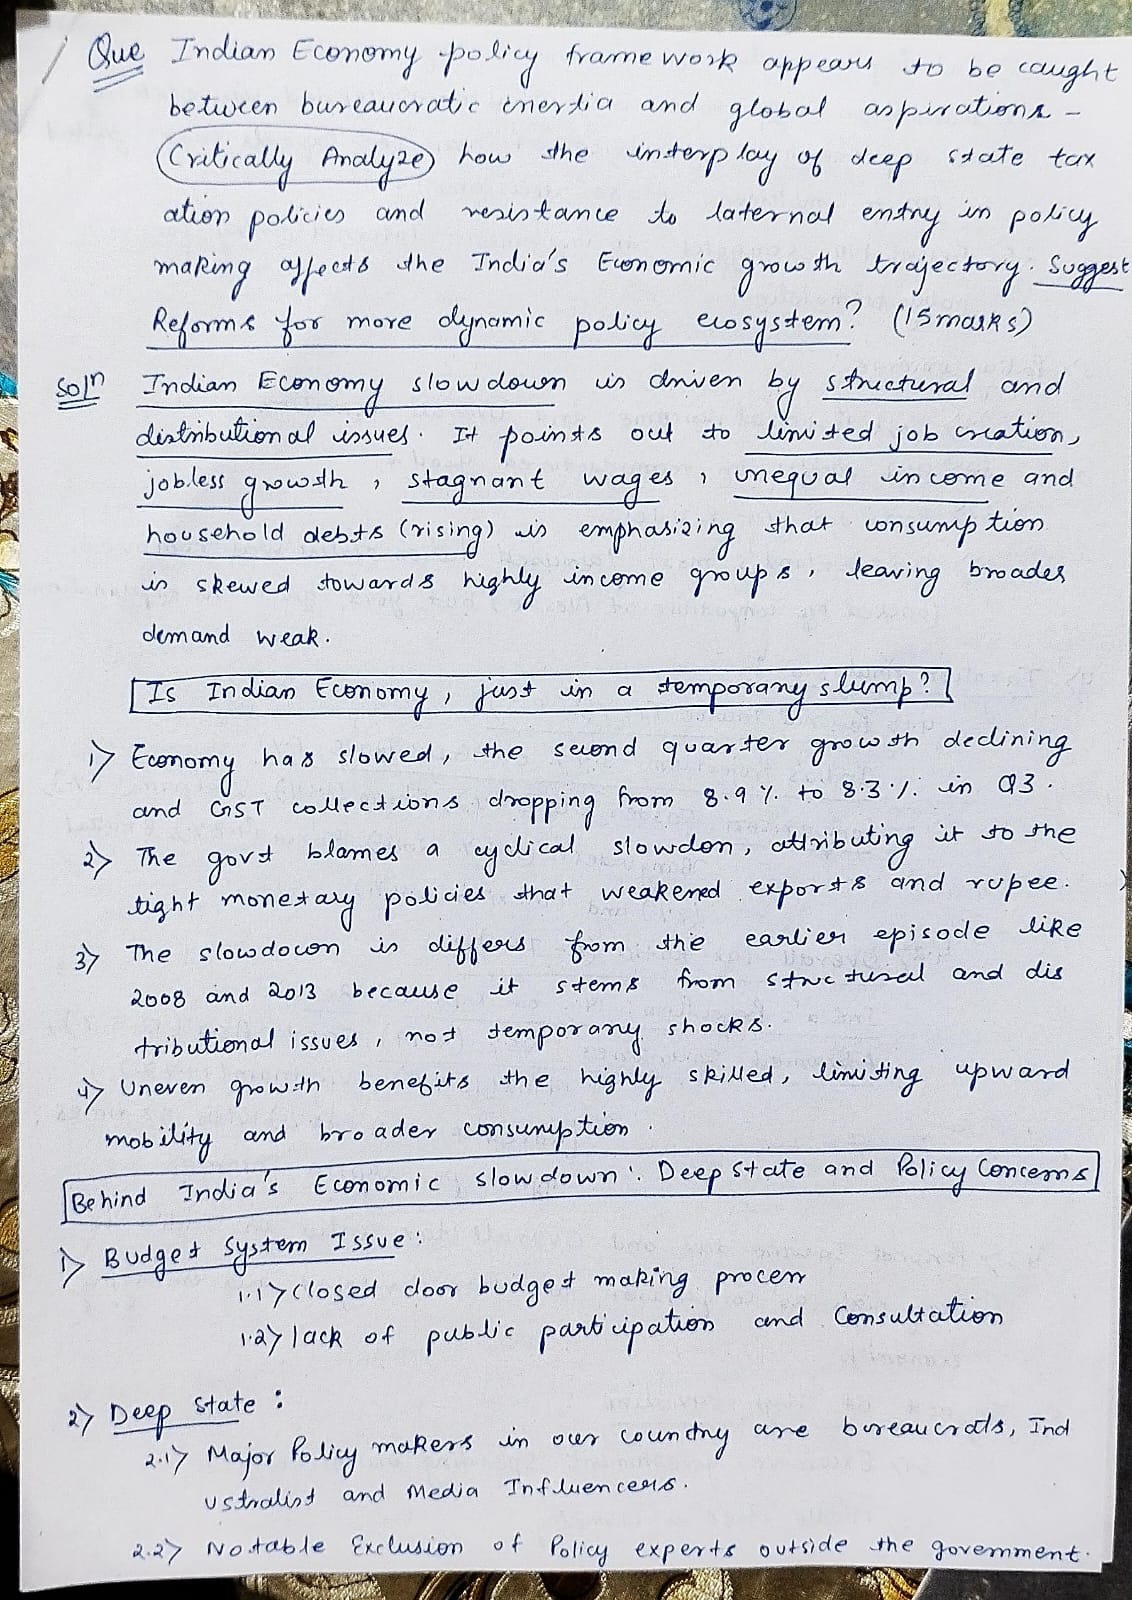 Que Indian Economy policy framework appears to be caught
between bureaucratic inertia and global aspirations -
Critically Analyze how the interplay of deep state tax
ation policies and resistance to laternal entry in policy
making affects the India's Economic growth trajectory. Suggest
Reforms for more dynamic policy ecosystem? (15 marks)
Soln Indian Economy slowdown is driven by structural and
distributional issues. It points out to limited job creation,
jobless growth, stagnant wages, unequal income and
household debts (rising) is emphasizing that consumption
is skewed towards highly income groups, leaving broader
demand weak.
Is Indian Economy, just in a temporary slump?
1> Economy has slowed, the second quarter growth declining
and GST collections dropping from 8.9 % to 8.3 % in Q3.
2> The govt blames a cyclical slowdon, attributing it to the
tight monetary policies that weakened exports and rupee.
3> The slowdown is differs from the earlier episode like
2008 and 2013 because it stems from structural and dis
tributional issues, not temporary shocks.
4> Uneven growth benefits the highly skilled, limiting upward
mobility and broader consumption.
Behind India's Economic slowdown: Deep State and Policy Concerns
1> Budget System Issue:
1.1> Closed door budget making process
1.2> lack of public participation and Consultation
2> Deep State:
2.1> Major Policy makers in our country are bureaucrats, Ind
ustralist and Media Influencers.
2.2> Notable Exclusion of Policy experts outside the government.